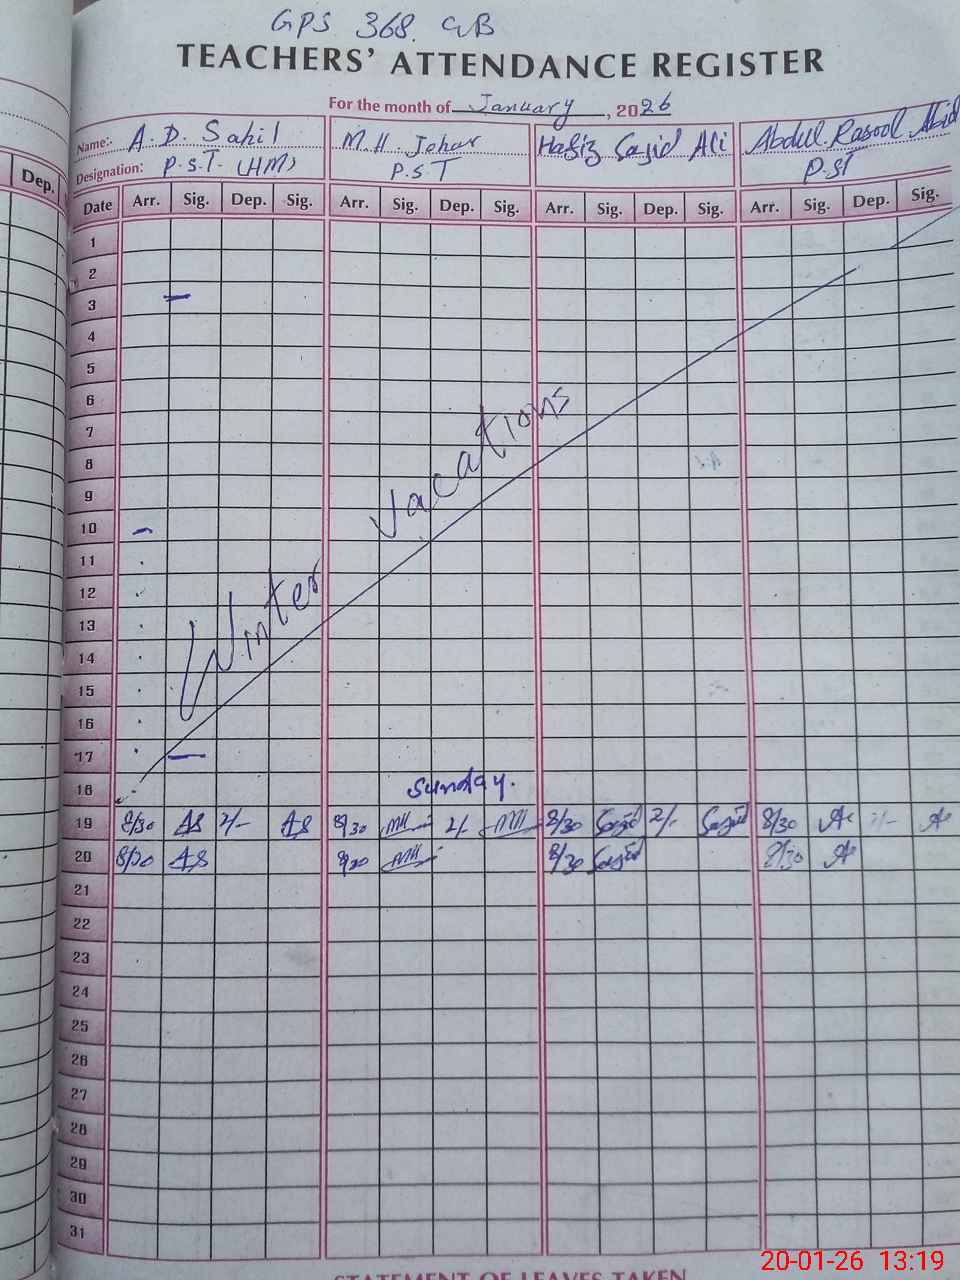 GPS 368 GB
TEACHERS' ATTENDANCE REGISTER
For the month of January, 2026
Name: A. D. Sahil M. H. Johar Hafiz Sajid Ali Abdul Rasool Abid
Designation: P.S.T. (HM) P.S.T P.ST
Dep. Date Arr. Sig. Dep. Sig. Arr. Sig. Dep. Sig. Arr. Sig. Dep. Sig. Arr. Sig. Dep. Sig.
1
2
3
4
5
6
7
8
9
10
11
12
13
14
15
16
17
Winter Vacations
18 Sunday.
19 8/30 AS 2/- AS 8/30 MH 2/- MH 8/30 Sajid 2/- Sajid 8/30 2/-
20 8/30 AS 8/30 MH 8/30 Sajid 8/30
21
22
23
24
25
26
27
28
29
30
31
STATEMENT OF LEAVES TAKEN
20-01-26 13:19